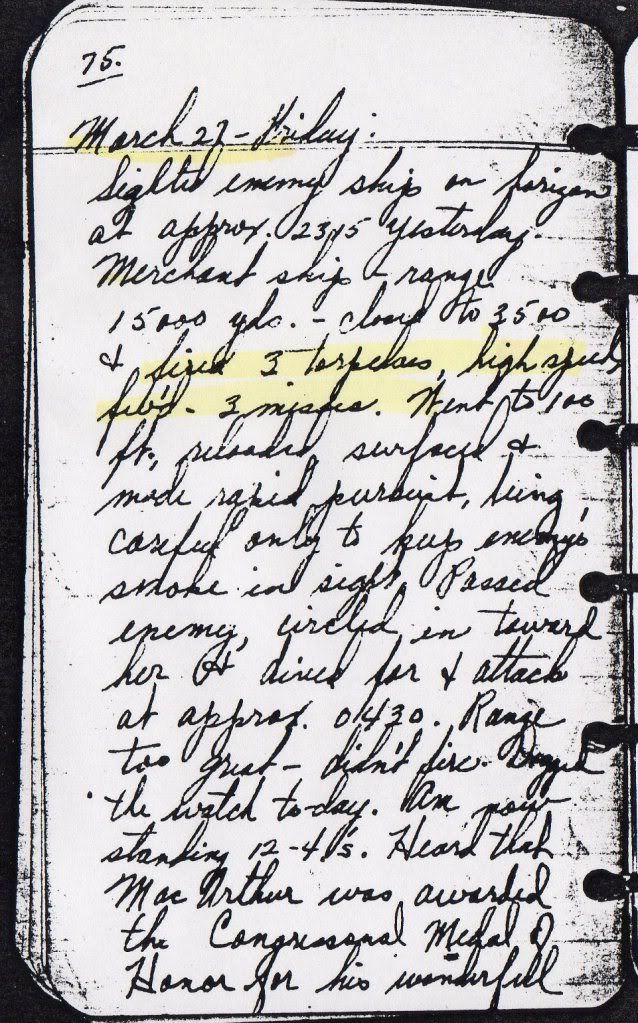 75.
March 27 - Friday:
Sighted enemy ship on horizon
at approx. 2315 yesterday.
Merchant ship - range
15000 yds. - closed to 3500
& fired 3 torpedoes, high speed,
- 3 misses. Went to 100
ft., reloaded surfaced &
made rapid pursuit, being
careful only to keep enemy's
smoke in sight. Passed
enemy, circled in toward
her & dived for & attack
at approx. 0430. Range
too great - didn't fire. Dogged
the watch to-day. Am now
standing 12-4's. Heard that
MacArthur was awarded
the Congressonal Medal of
Honor for his wonderful